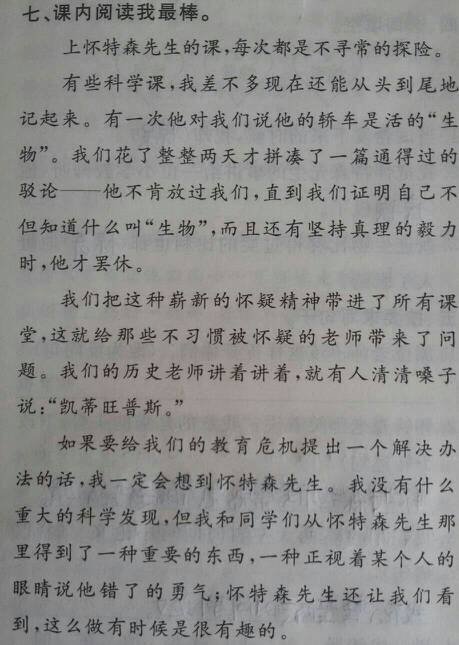 七、课内阅读我最棒。
上怀特森先生的课,每次都是不寻常的探险。
有些科学课,我差不多现在还能从头到尾地
记起来。有一次他对我们说他的轿车是活的“生
物”。我们花了整整两天才拼凑了一篇通得过的
驳论——他不肯放过我们,直到我们证明自己不
但知道什么叫“生物”,而且还有坚持真理的毅力
时,他才罢休。
我们把这种崭新的怀疑精神带进了所有课
堂,这就给那些不习惯被怀疑的老师带来了问
题。我们的历史老师讲着讲着,就有人清清嗓子
说:“凯蒂旺普斯。”
如果要给我们的教育危机提出一个解决办
法的话,我一定会想到怀特森先生。我没有什么
重大的科学发现,但我和同学们从怀特森先生那
里得到了一种重要的东西,一种正视着某个人的
眼睛说他错了的勇气;怀特森先生还让我们看
到,这么做有时候是很有趣的。